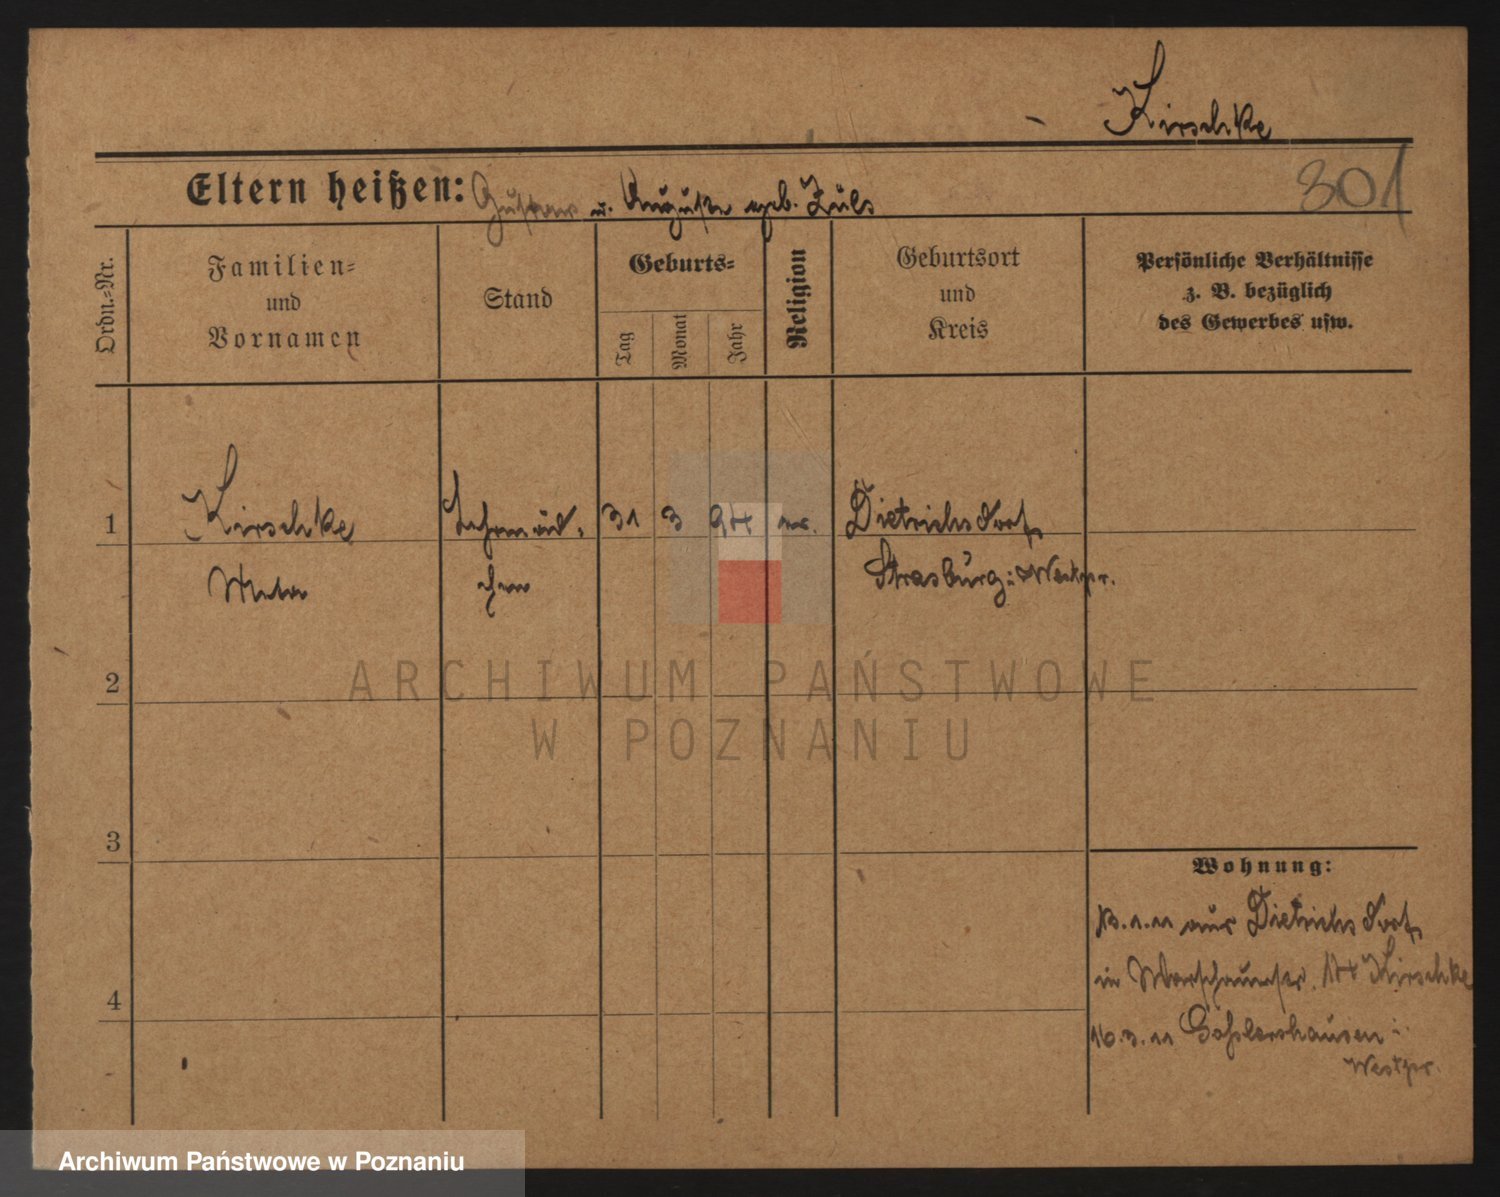 Kirschke
301
Eltern heißen: Gustav u. Auguste geb. Züls
Ordn.=Nr.
Familien=
und
Vornamen
Stand
Geburts=
Tag
Monat
Jahr
Religion
Geburtsort
und
Kreis
Persönliche Verhältnisse
z. B. bezüglich
des Gewerbes usw.
1 Kirschke 31 3 94 Dietrichsdorf
Meta Strasburg i. Westpr.
2
3
4
Wohnung:
13.1.11 aus Dietrichsdorf
in 14 Kirschke
16.3.11 Goßlershausen i.
Westpr.
ARCHIWUM PAŃSTWOWE
W POZNANIU
Archiwum Państwowe w Poznaniu